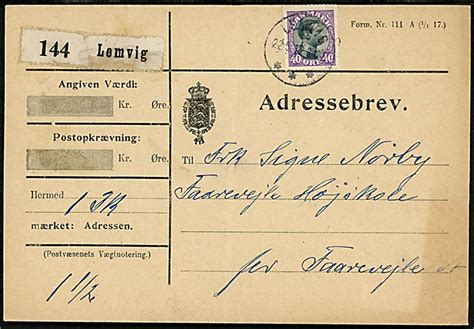 Form. Nr. 111 A (¹/₁ 17.)
144 Lemvig
DANMARK
40 ØRE 40
Angiven Værdi:
Kr. Øre.
Postopkrævning:
Kr. Øre.
Hermed
mærket: Adressen.
(Postvæsenets Vægtnotering.)
1 1/2
Adressebrev.
Til Frk Signe Nørby
Faarevejle Højskole
per Faarevejle St